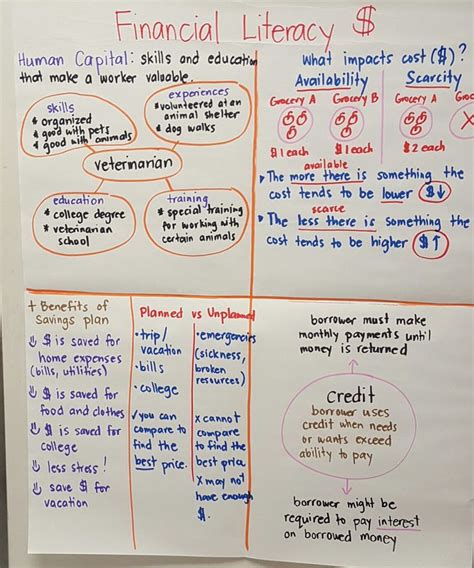 Financial Literacy $
Human Capital: skills and education
that make a worker valuable.
skills
* organized
* good with pets
* good with animals
experiences
* volunteered at an
animal shelter
* dog walks
veterinarian
education
* college degree
* veterinarian
school
training
* special training
for working with
certain animals
What impacts cost ($)?
Availability
Scarcity
Grocery A
Grocery B
Grocery A
Groc
$1 each
$1 each
$2 each
available
The more there is something the
cost tends to be lower $↓
scarce
The less there is something the
cost tends to be higher $↑
+ Benefits of
Savings plan
$ is saved for
home expenses
(bills, utilities)
$ is saved for
food and clothes
$ is saved for
college
less stress!
save $ for
vacation
Planned vs Unplanned
• trip/
vacation
• bills
• college
✓ you can
compare to
find the
best price.
• emergencies
(sickness,
broken
resources)
x cannot
compare
to find the
best price
x may not
have enough
$.
borrower must make
monthly payments until
money is returned
Credit
borrower uses
credit when needs
or wants exceed
ability to pay
borrower might be
required to pay interest
on borrowed money